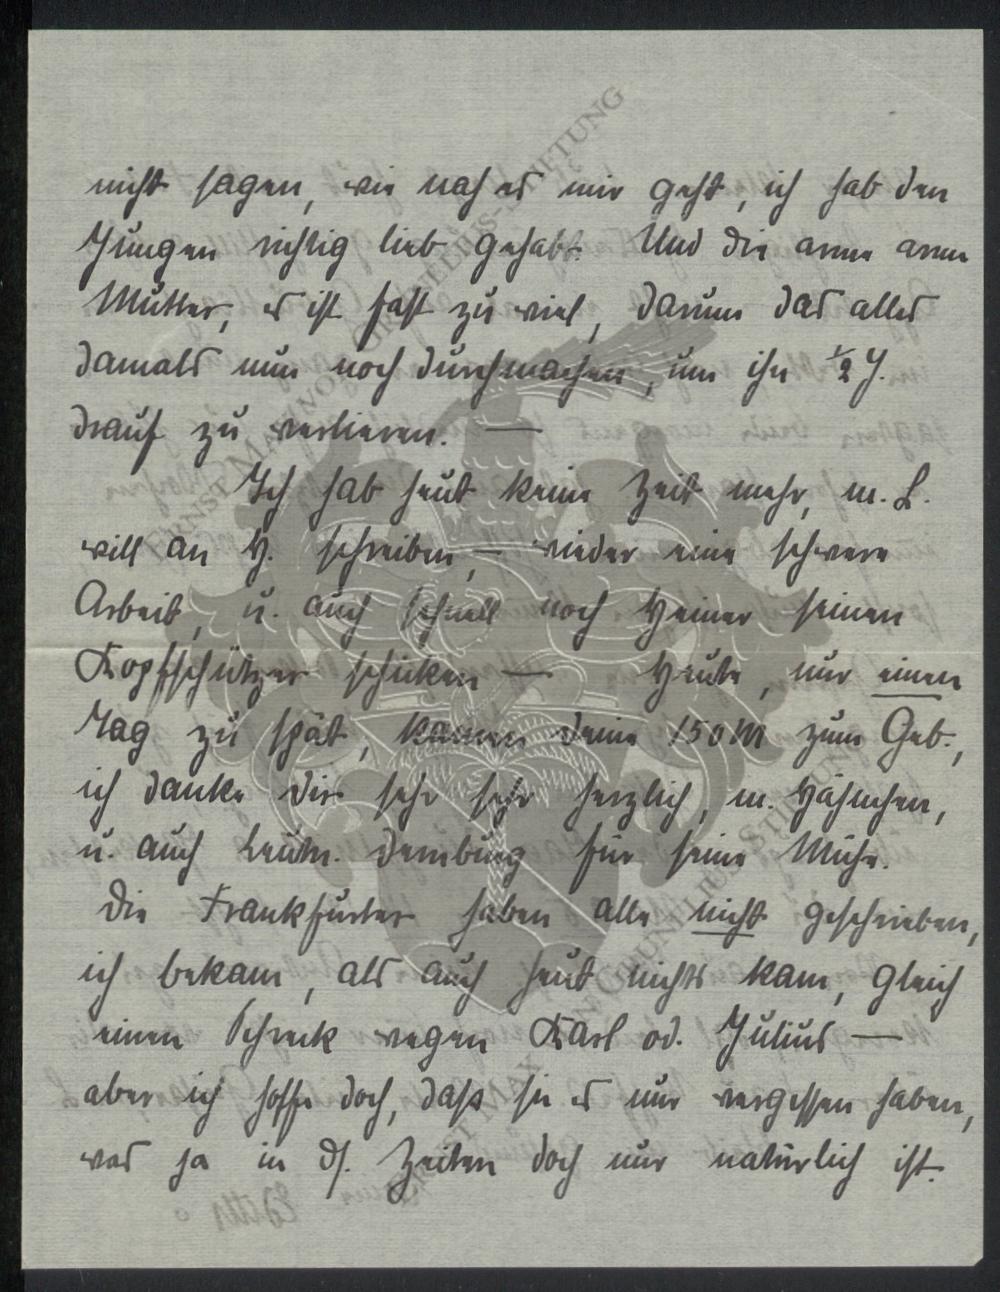 nicht sagen, wie nah es mir geht, ich hab den
Jungen richtig lieb gehabt. Und die arme arme
Mutter, es ist fast zu viel, darum das alles
damals nun noch durchmachen, um ihn 1/2 J.
drauf zu verlieren. —
Ich hab heut keine Zeit mehr, m. L.
will an H. schreiben, — wieder eine schwere
Arbeit, u. auch schnell noch Heiner seinen
Kopfschützer schicken — Heute, nur einen
Tag zu spät, kamen deine 150 M zum Geb.,
ich danke dir sehr sehr herzlich, m. Hähnchen,
u. auch Leutn. Dernburg für seine Mühe.
Die Frankfurter haben alle nicht geschrieben,
ich bekam, als auch heut nichts kam, gleich
einen Schreck wegen Karl od. Julius —
aber ich hoffe doch, dass sie es nur vergessen haben,
was ja in ds. Zeiten doch nur natürlich ist.
ERNST MAX VON GRUNELIUS-STIFTUNG
ERNST MAX VON GRUNELIUS-STIFTUNG